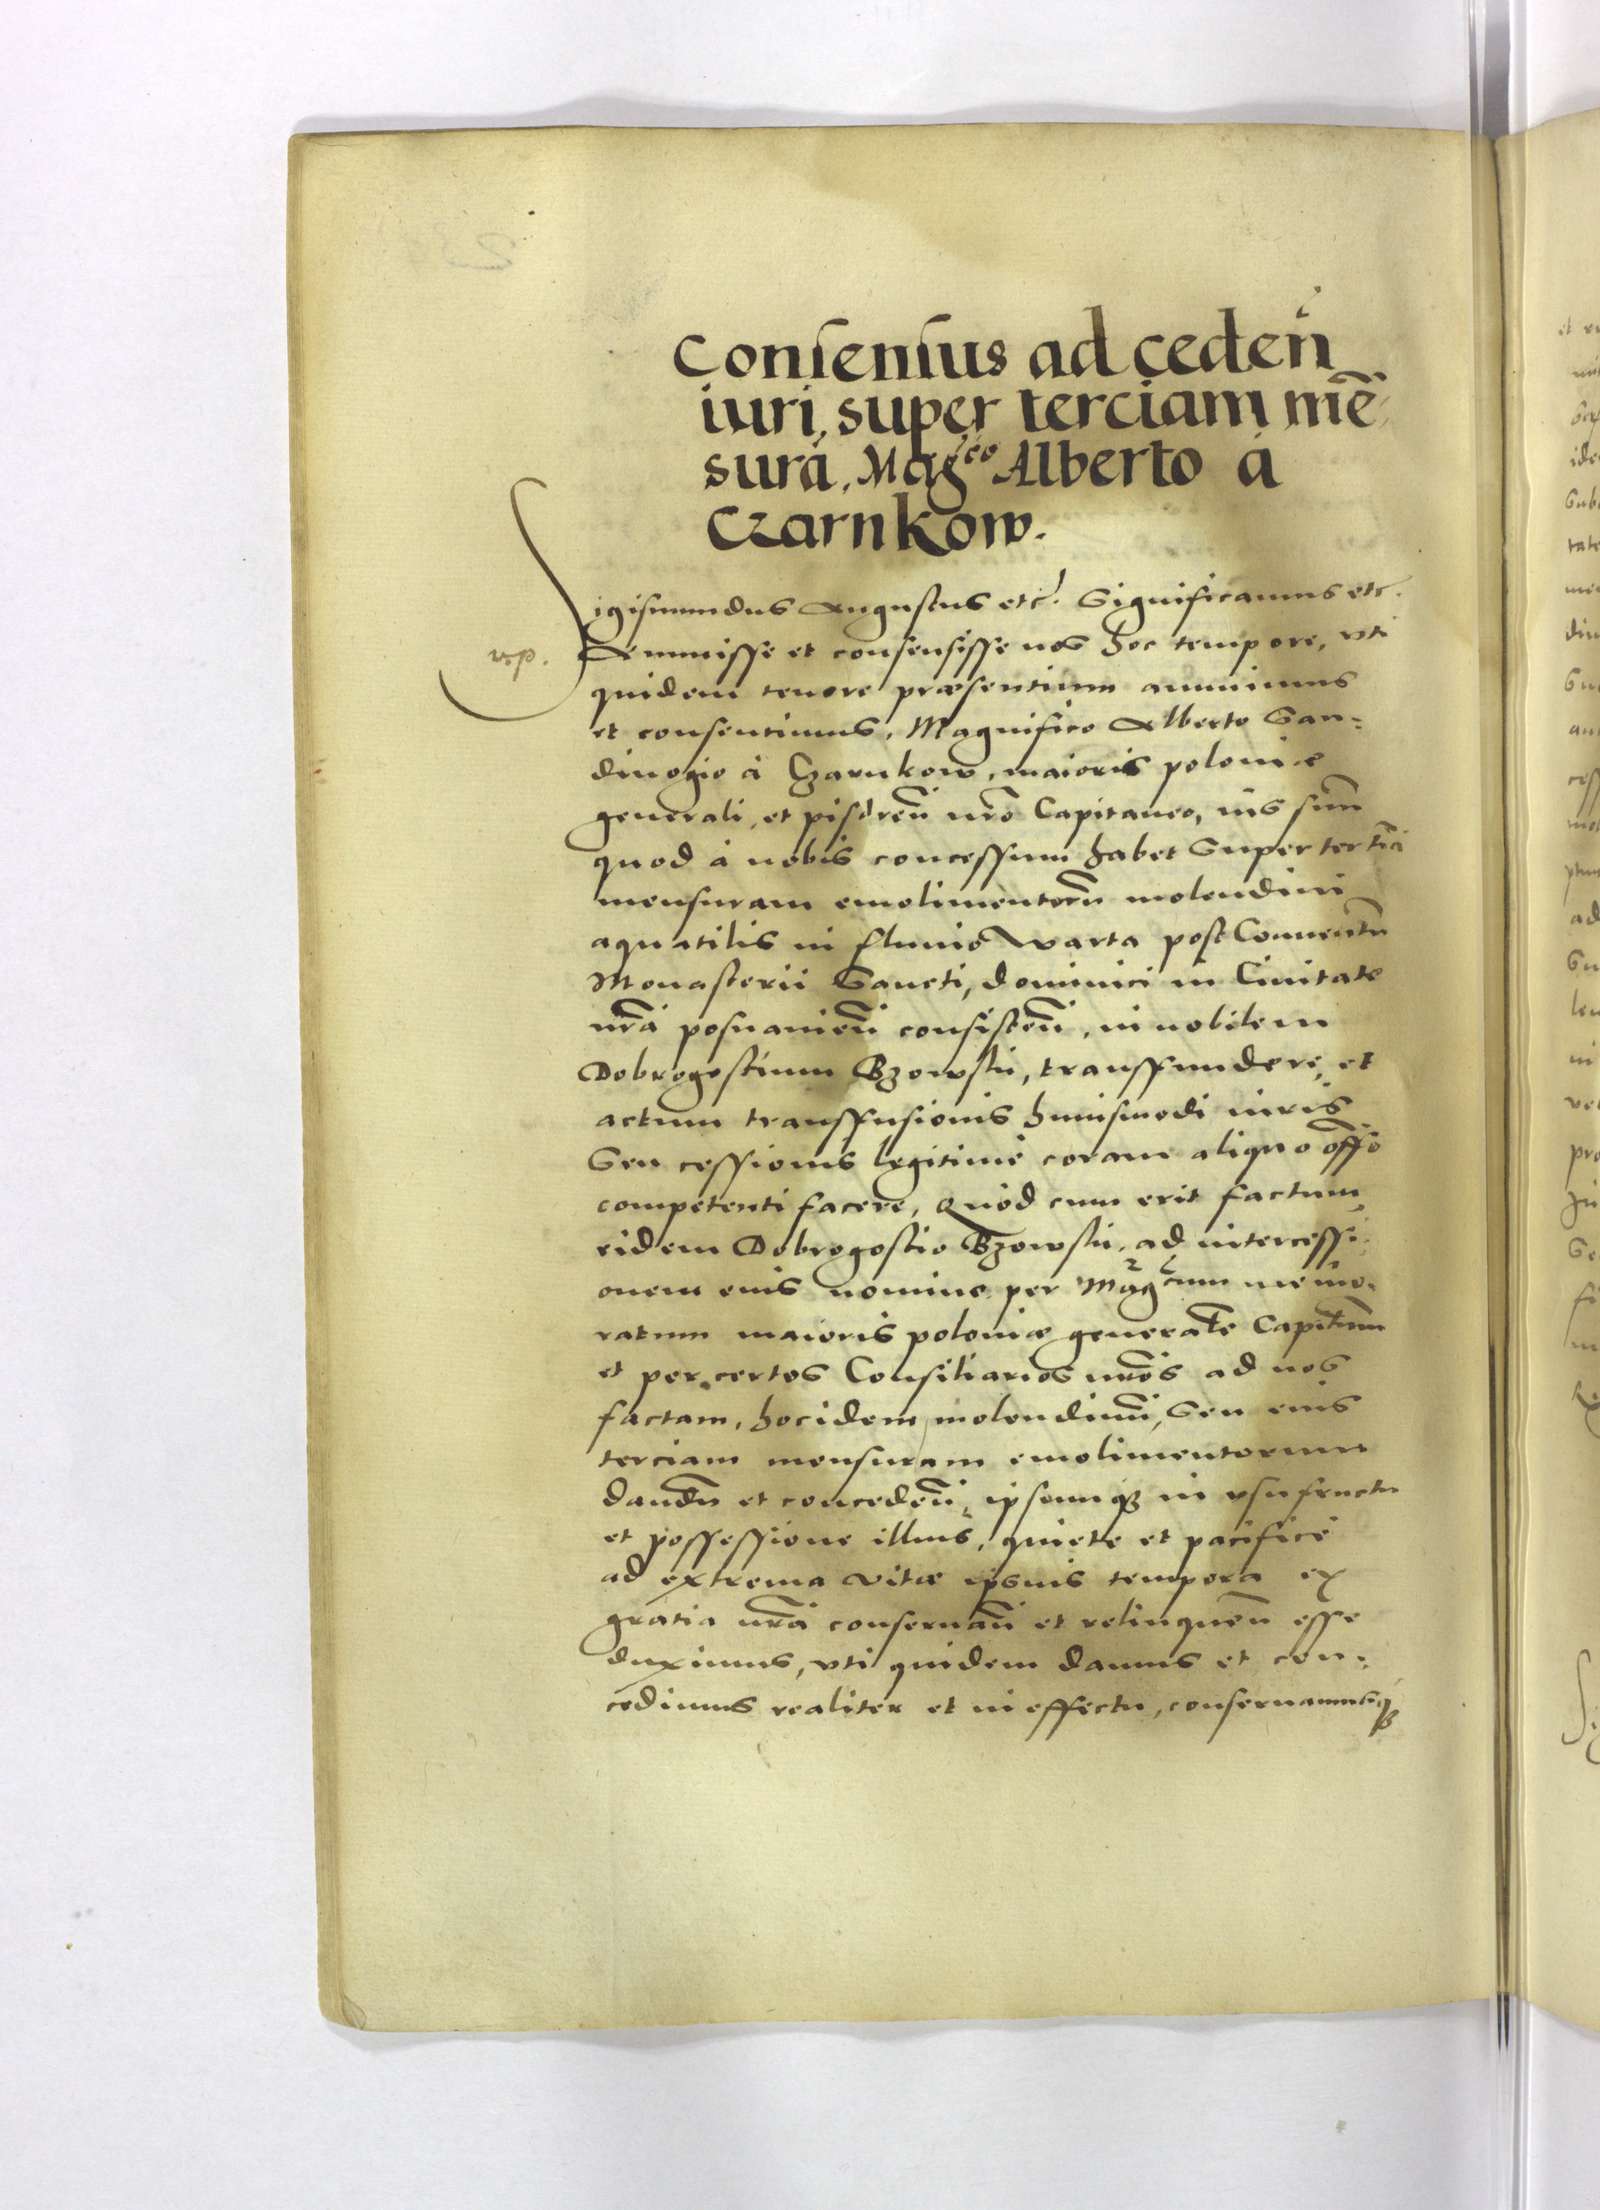 Consensus ad ceden̄
iuri, super terciam mē
surā, Mag^co Alberto à
Czarnkow.
Sigismundus Augustus etc. Significamus etc.
vp.
Annuisse et consensisse nos hoc tempore, vti
quidem tenore præsentium annuimus
et consentimus, Magnifico Alberto San-
diuogio à Czarnkow, maioris poloniæ
generali, et pisdren̄ nrō Capitaneo, ius suū
quod à nobis concessum habet super terciā
mensuram emolimentorū molendini
aquatilis in fluuio Warta post Conuentū
Monasterii Sancti, dominici in Ciuitate
nrā posnanien̄ consisten̄, in nobilem
Dobrogostium Bzowski, transfundere, et
actum transfusionis huiusmodi iuris
Seu cessionis legitimè coram aliquo offō
competenti facere, Quod cum erit factum,
eidem Dobrogostio Bzowski, ad intercessi-
onem eius nomine per Mag^cum memo-
ratum maioris poloniæ generalē Capitneum
et per certos Consiliarios nrōs ad nos
factam, hoc idem molendinū, Seu eius
terciam mensuram emolimentorum
dandū et conceden̄, ipsumq3 in vsufructu
et possessione illius, quiete et pacificè
ad extrema vitæ ipsius tempora ex
gratia nrā conseruan̄ et relinquen̄ esse
duximus, vti quidem damus et con-
cedimus realiter et in effectu, conseruamusq3